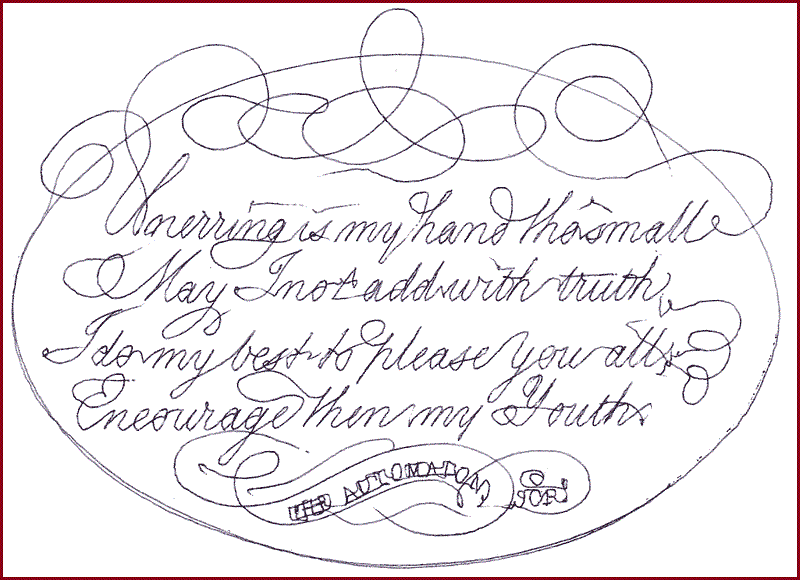 Unerring is my hand tho small
May I not add with truth
I do my best to please you all
Encourage then my Youth.
AUTOMATON